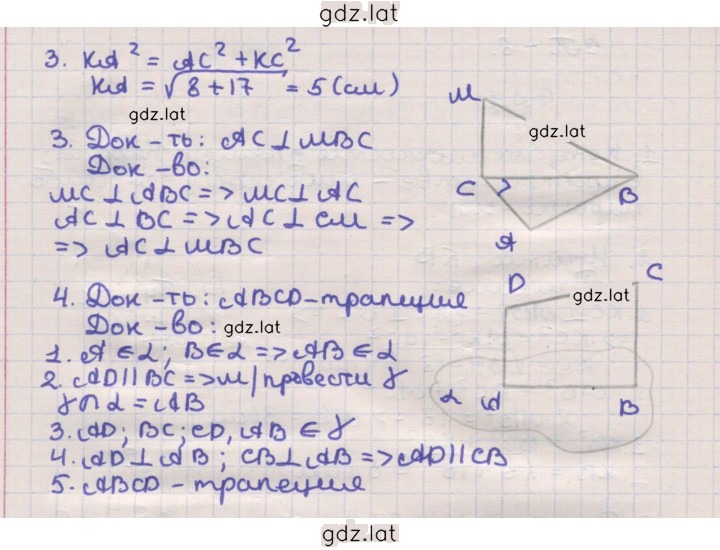 gdz.lat
3. KA² = AC² + KC²
KA = √8+17 = 5 (см)
gdz.lat
3. Док-ть: AC ⊥ MBC
Док-во:
MC ⊥ ABC => MC ⊥ AC
AC ⊥ BC => AC ⊥ CM =>
=> AC ⊥ MBC
M
gdz.lat
C
B
A
4. Док-ть: ABCD-трапеция
Док-во: gdz.lat
1. A ∈ α; B ∈ α => AB ∈ α
2. AD || BC => м/провести γ
γ ∩ α = AB
3. AD; BC; CD, AB ∈ γ
4. AD ⊥ AB; CB ⊥ AB => AD || CB
5. ABCD - трапеция
D
C
gdz.lat
α A
B
gdz.lat